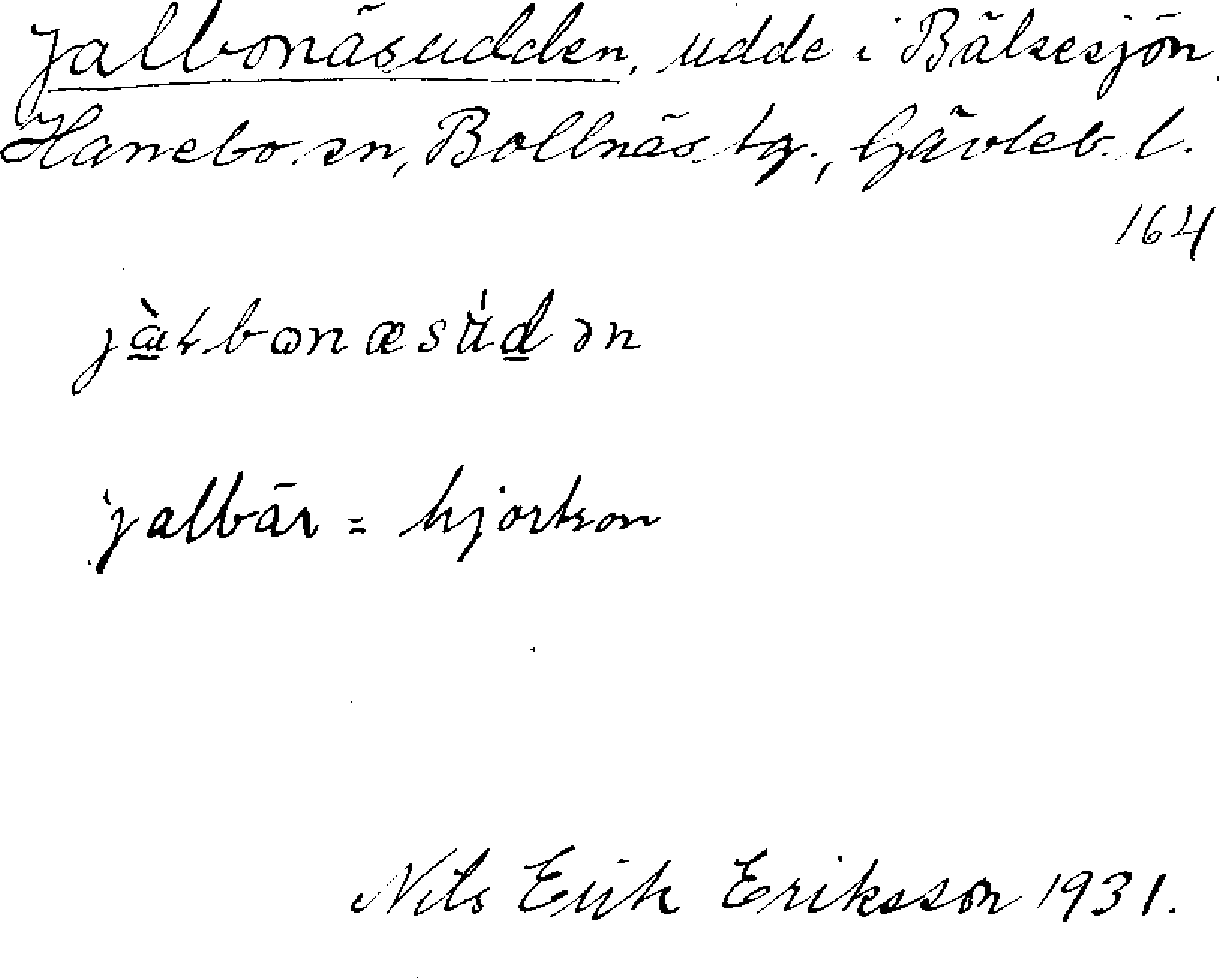 Jalbonäsudden, udde i Bälsesjön
Hanebo sn, Bollnäs tg., Gävleb. l.
164
jalbär = hjortron
Nils Erik Eriksson 1931.